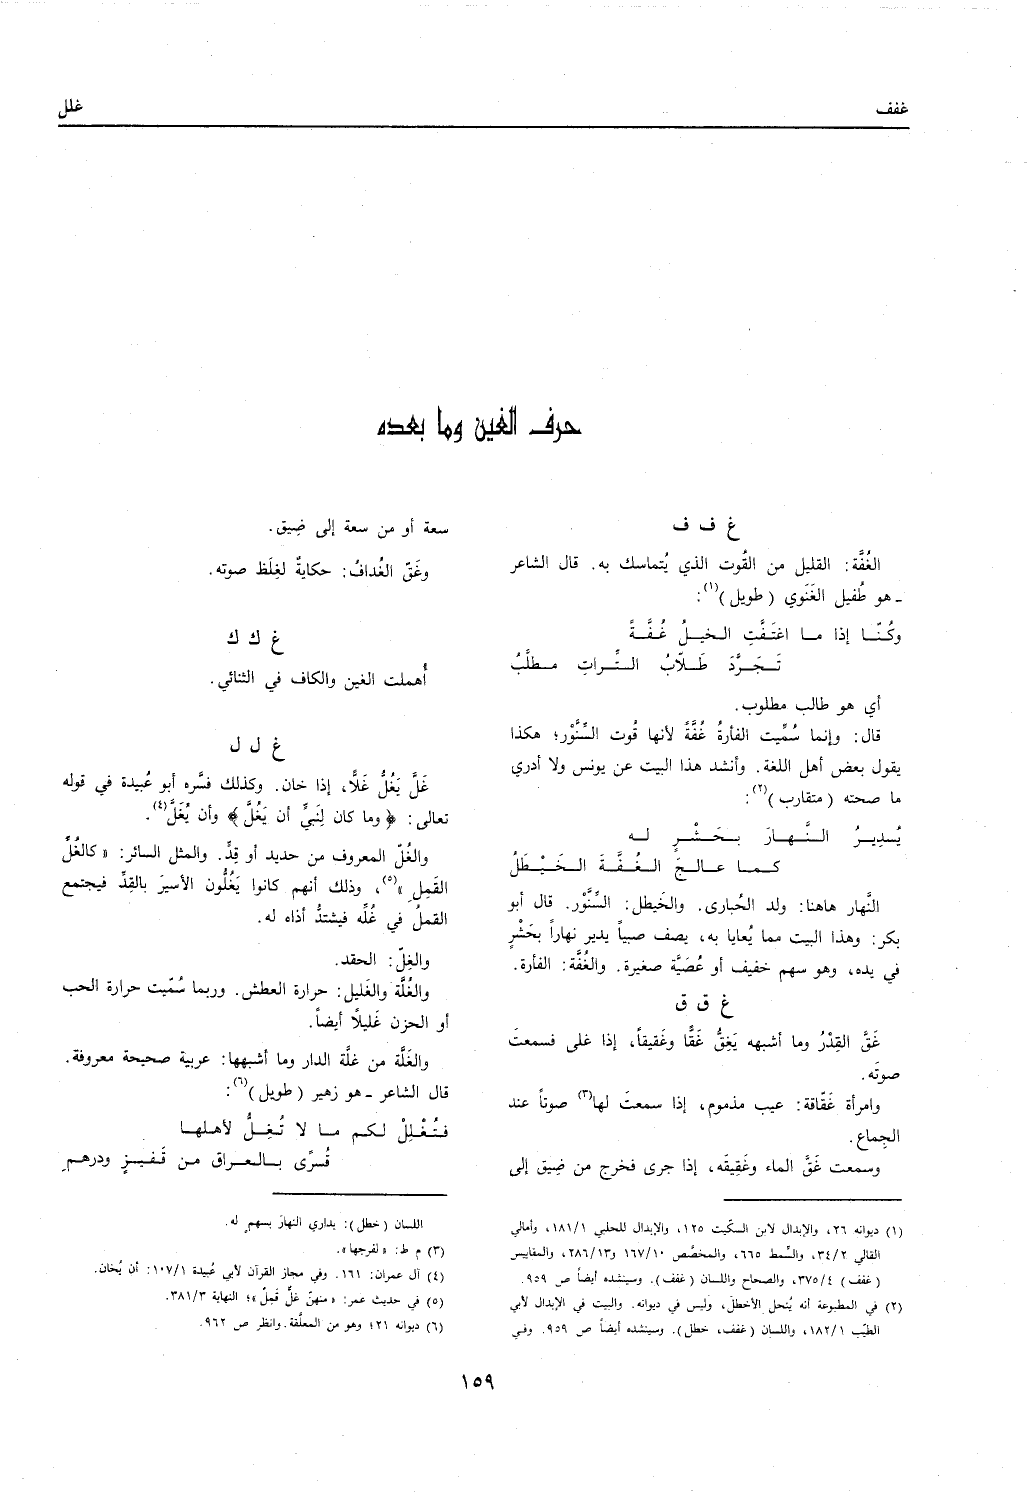 غفف
غلل
حرف الغين وما بعده
غ ف ف
الغُفَّة: القليل من القُوت الذي يُتماسك به. قال الشاعر
ـ هو طُفيل الغَنَوي (طويل)(١):
وكُنّا إذا ما اغتَفَّتِ الخيلُ غُفَّةً
تَجَرَّدَ طَلّابُ التِّراتِ مطلَّبُ
أي هو طالب مطلوب.
قال: وإنما سُمِّيت الفأرةُ غُفَّةً لأنها قُوت السِّنَّوْر؛ هكذا
يقول بعض أهل اللغة. وأنشد هذا البيت عن يونس ولا أدري
ما صحته (متقارب)(٢):
يُديرُ النَّهارَ بحَشْرٍ له
كما عالجَ الغُفَّةَ الخَيْطَلُ
النَّهار هاهنا: ولد الحُبارى. والخَيطل: السِّنَّوْر. قال أبو
بكر: وهذا البيت مما يُعايا به، يصف صبياً يدير نهاراً بحَشْرٍ
في يده، وهو سهم خفيف أو عُصَيَّة صغيرة. والغُفَّة: الفأرة.
غ ق ق
غَقَّ القِدْرُ وما أشبهه يَغِقُّ غَقًّا وغَقيقاً، إذا غلى فسمعتَ
صوتَه.
وامرأة غَقّاقة: عيب مذموم، إذا سمعتَ لها(٣) صوتاً عند
الجِماع.
وسمعت غَقَّ الماء وغَقِيقَه، إذا جرى فخرج من ضِيق إلى
سعة أو من سعة إلى ضِيق.
وغَقّ الغُدافُ: حكايةٌ لغِلَظ صوته.
غ ك ك
أُهملت الغين والكاف في الثنائي.
غ ل ل
غَلَّ يَغُلُّ غَلًّا، إذا خان. وكذلك فسَّره أبو عُبيدة في قوله
تعالى: ﴿وما كان لِنَبيٍّ أن يَغُلَّ﴾ وأن يُغَلَّ(٤).
والغُلّ المعروف من حديد أو قِدٍّ. والمثل السائر: «كالغُلِّ
القَمِلِ»(٥)، وذلك أنهم كانوا يَغُلُّون الأسيرَ بالقِدِّ فيجتمع
القملُ في غُلِّه فيشتدُّ أذاه له.
والغِلّ: الحقد.
والغُلَّة والغَليل: حرارة العطش. وربما سُمّيت حرارة الحب
أو الحزن غَليلًا أيضاً.
والغَلَّة من غلَّة الدار وما أشبهها: عربية صحيحة معروفة.
قال الشاعر ـ هو زهير (طويل)(٦):
فتُغْلِلْ لكم ما لا تُغِلُّ لأهلها
قُرًى بالعراق من قَفيزٍ ودرهمِ
(١) ديوانه ٢٦، والإبدال لابن السكّيت ١٢٥، والإبدال للحلبي ١٨١/١، وأمالي
القالي ٣٤/٢، والسِّمط ٦٦٥، والمخصَّص ١٦٧/١٠ و٢٨٦/١٣، والمقاييس
(غفف) ٣٧٥/٤، والصحاح واللسان (غفف). وسينشده أيضاً ص ٩٥٩.
(٢) في المطبوعة أنه يُنحل الأخطل، وليس في ديوانه. والبيت في الإبدال لأبي
الطيّب ١٨٢/١، واللسان (غفف، خطل). وسينشده أيضاً ص ٩٥٩. وفي
اللسان (خطل): يداري النهارَ بسهمٍ له.
(٣) م ط: «لفرجها».
(٤) آل عمران: ١٦١. وفي مجاز القرآن لأبي عُبيدة ١٠٧/١: أن يُخان.
(٥) في حديث عمر: «منهنّ غلٌّ قَمِلٌ»؛ النهاية ٣٨١/٣.
(٦) ديوانه ٢١؛ وهو من المعلَّقة. وانظر ص ٩٦٢.
١٥٩